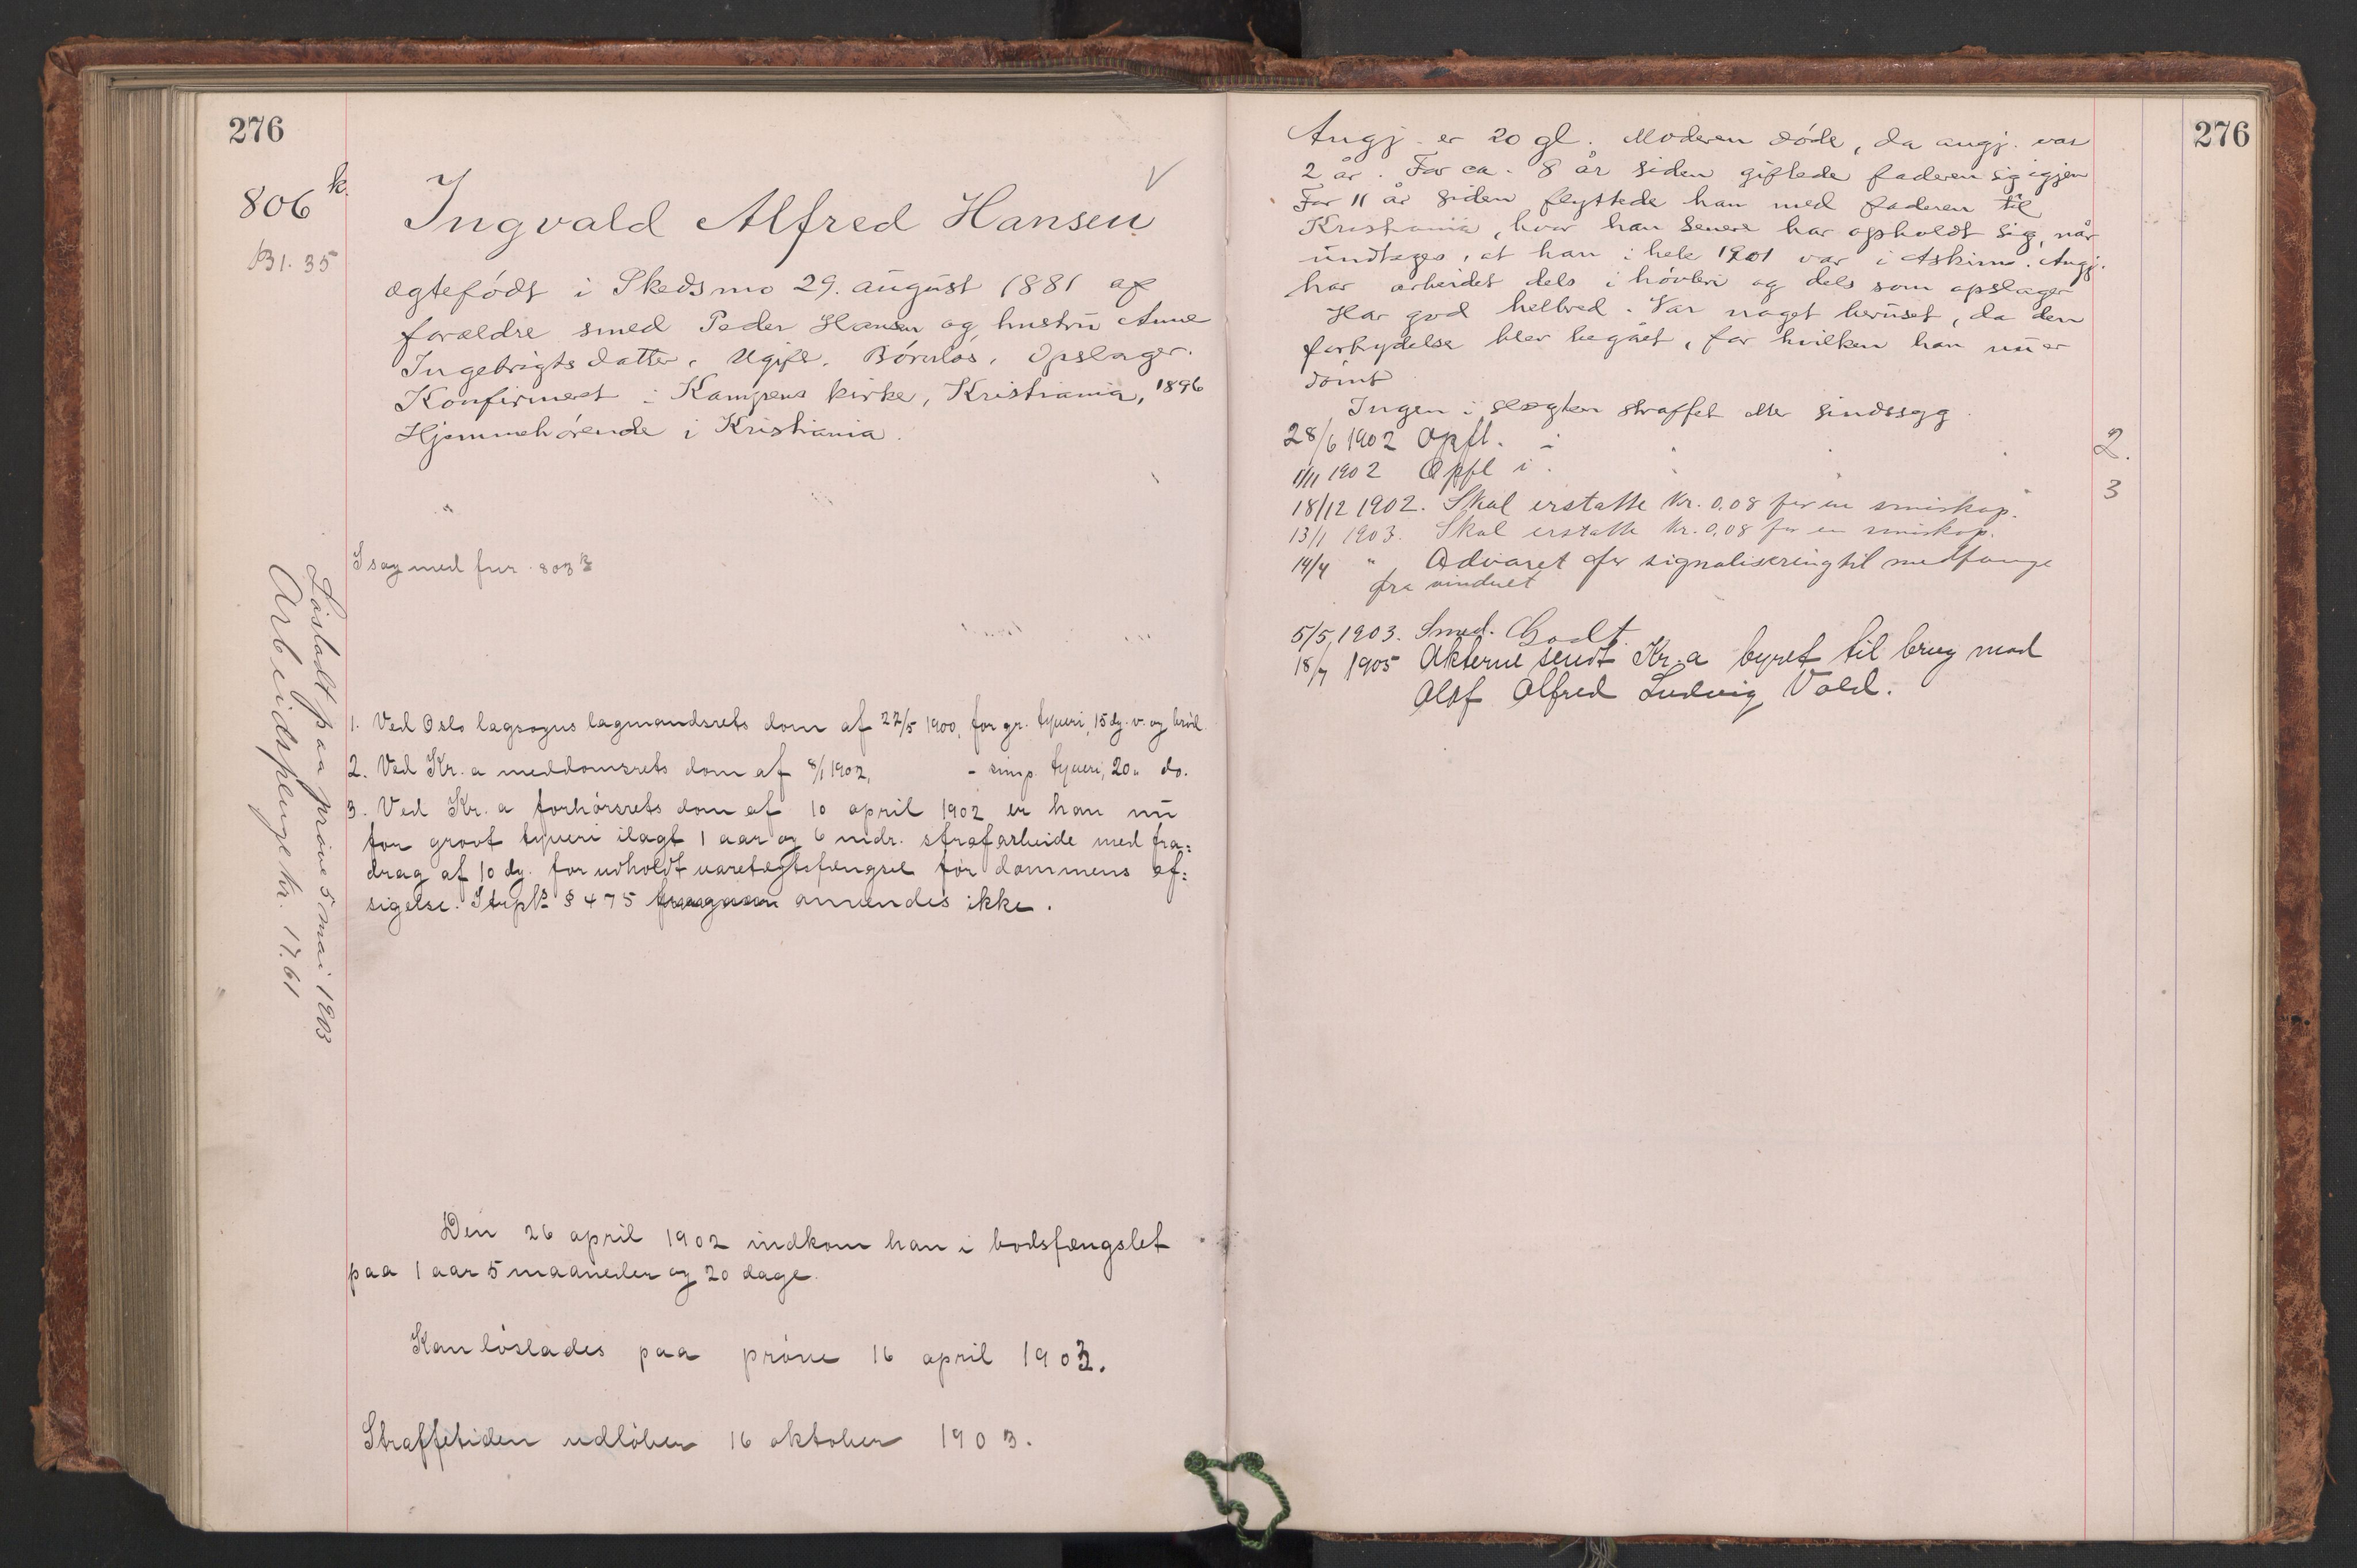 276
806 k.
B1. 35
Ingvald Alfred Hansen
ægtefødt i Skedsmo 29. august 1881 af
forældre smed Peder Hansen og hustru Anne
Ingebrigtsdatter. Ugift. Børnløs. Opslager.
Konfirmeret i Kampens kirke, Kristiania, 1896
Hjemmehørende i Kristiania.
I sag med fnr. 803 k
Løsladt paa prøve 5 mai 1903
Arbeidspenge kr. 17.61
1. Ved Oslo lagsogns lagmandsrets dom af 22/5 1900, for gr. tyveri, 15 dg. v. og brød
2. Ved Kr.a meddomsrets dom af 8/1 1902, - simp. tyveri, 20 " do.
3. Ved Kr.a forhørsrets dom af 10 april 1902 er han nu
for grovt tyveri ilagt 1 aar og 6 mdr. strafarbeide med fra=
drag af 10 dg. for udholdt varetægtsfængsel før dommens af=
sigelse. Strpl. § 475 anvendes ikke.
Den 26 april 1902 indkom han i bodsfængslet
paa 1 aar 5 maaneder og 20 dage.
Kan løslades paa prøve 16 april 1903.
Straffetiden udløber 16 oktober 1903.
276
Angj. er 20 gl. Moderen døde, da angj. var
2 år. For ca. 8 år siden giftede faderen sig igjen
For 11 år siden flyttede han med faderen til
Kristiania, hvor han senere har opholdt sig, når
undtages, at han i hele 1901 var i Askim. Angj.
har arbeidet dels i høvleri og dels som opslager
Har god helbred. Var noget beruset, da den
forbrydelse blev begået, for hvilken han nu er
dømt
Ingen i slægten straffet eller sindssyg.
28/6 1902 Opfl. i 2.
1/11 1902 Opfl i 3
18/12 1902. Skal erstatte kr. 0,08 for en smiskop.
13/1 1903. Skal erstatte kr. 0,08 for en smiskop.
14/4 " Advaret for signalisering til medfange
fra vinduet
5/5 1903. Smed. Godt.
18/7 1905 Akterne sendt Kr.a byret til brug mod
Olaf Alfred Ludvig Vold.